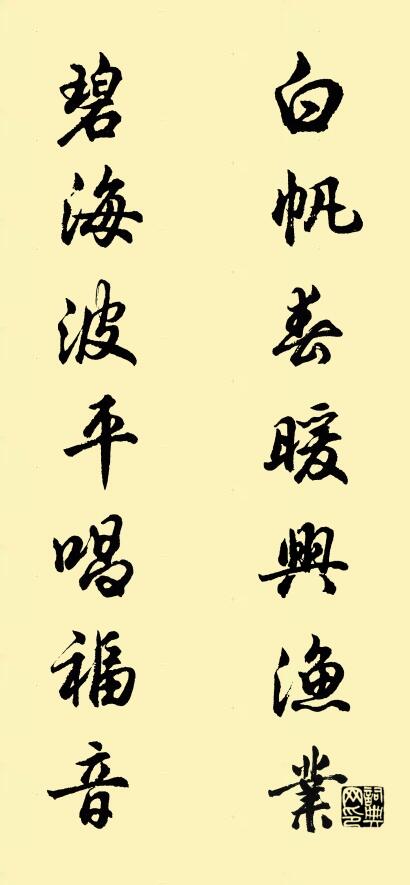 白帆春暖興漁業
碧海波平唱福音
詞典网印